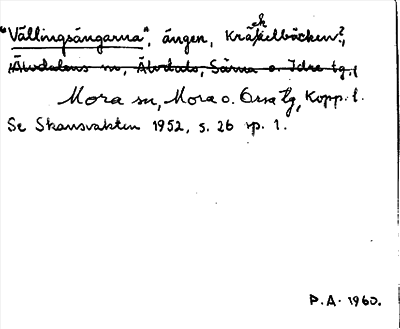 "Vällingsängarna", ängen, Kräkelbäcken?,
Älvdalens sn, Älvdals, Särna o. Idre tg,
Mora sn, Mora o. Orsa tg, Kopp. l.
Se Skansvakten 1952, s. 26 sp. 1.
P.A. 1960.